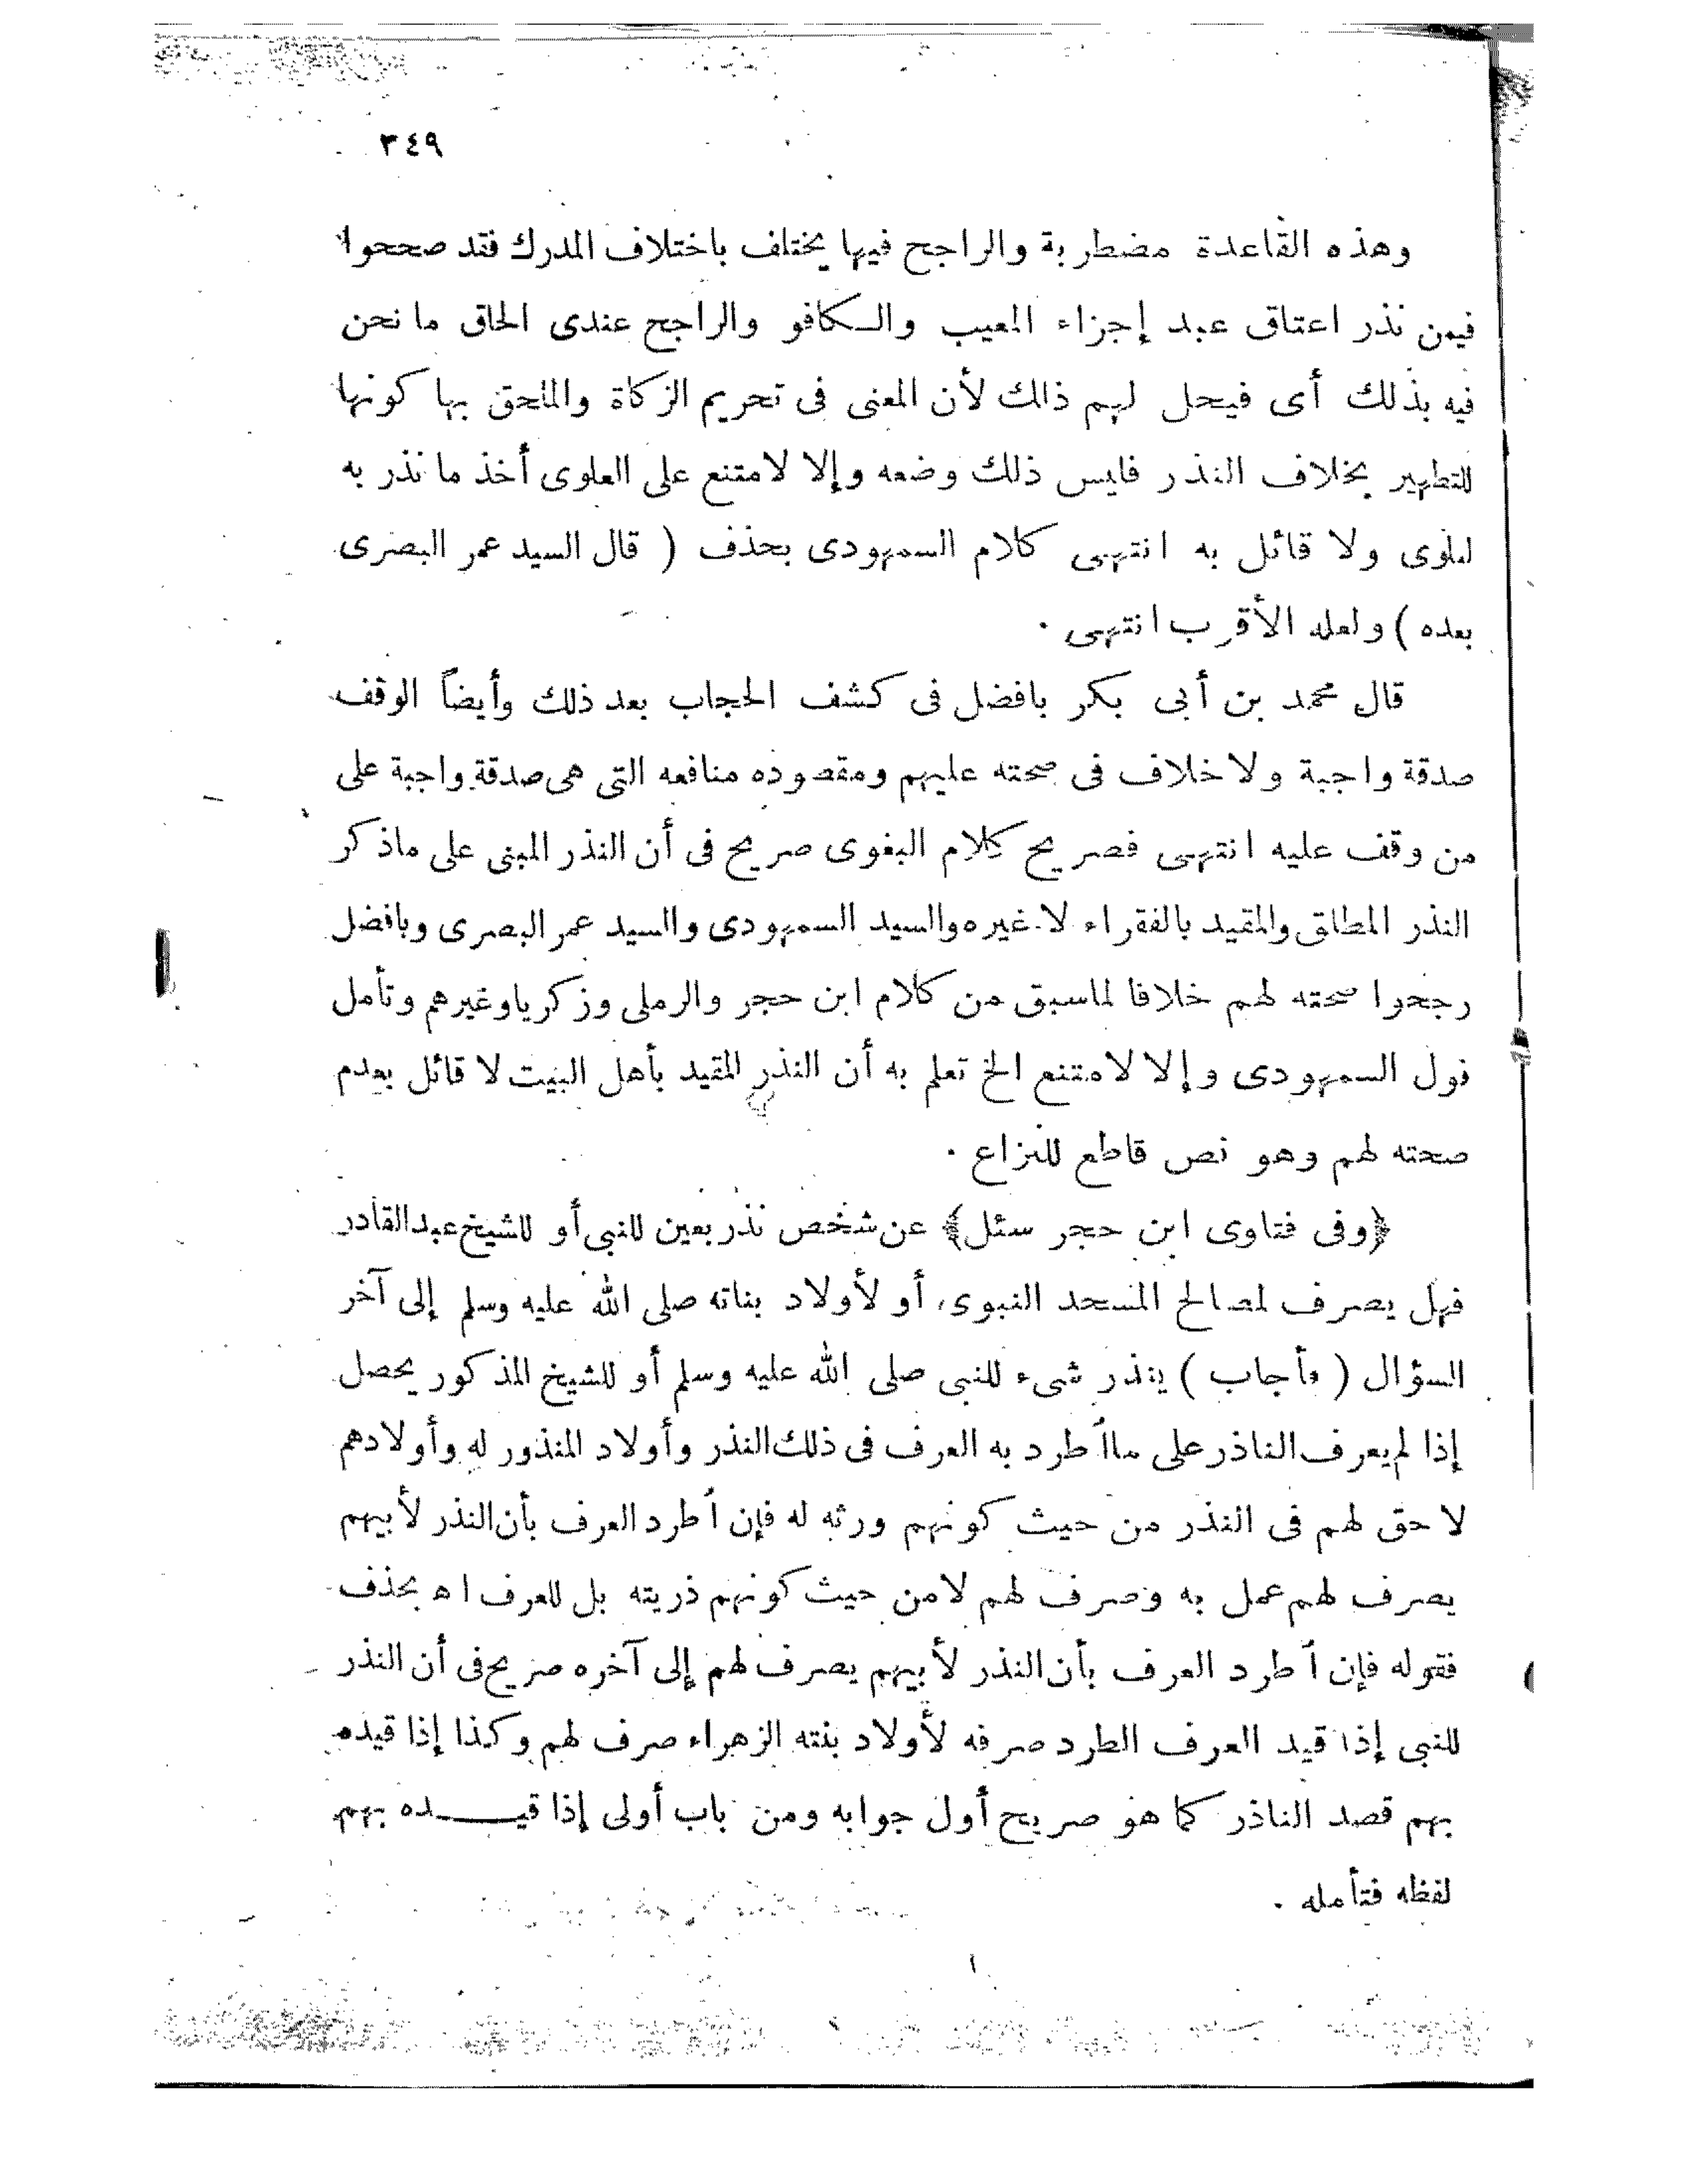 ٣٤٩
وهذه القاعدة مضطربة والراجح فيها يختلف باختلاف المدرك فقد صححوا
فيمن نذر اعتاق عبد إجزاء المعيب والكافو والراجح عندى الحاق ما نحن
فيه بذلك أى فيحل لهم ذلك لأن المعنى فى تحريم الزكاة والملحق بها كونها
للتطهير بخلاف النذر فليس ذلك وضعه وإلا لامتنع على العلوى أخذ ما نذر به
لعلوى ولا قائل به انتهى كلام السمهودى بحذف ( قال السيد عمر البصرى
بعده ) ولعله الأقرب انتهى .
قال محمد بن أبى بكر بافضل فى كشف الحجاب بعد ذلك وأيضاً الوقف
صدقة واجبة ولا خلاف فى صحته عليهم ومقصوده منافعه التى هى صدقة واجبة على
من وقف عليه انتهى فصريح كلام البغوى صريح فى أن النذر المبنى على ماذكر
النذر المطلق والمقيد بالفقراء لا غيره والسيد السمهودى والسيد عمر البصرى وبافضل
رجحوا صحته لهم خلافا لماسبق من كلام ابن حجر والرملى وزكريا وغيرهم وتأمل
قول السمهودى وإلا لامتنع الخ تعلم به أن النذر المقيد بأهل البيت لا قائل بعدم
صحته لهم وهو نص قاطع للنزاع .
﴿وفى فتاوى ابن حجر سئل﴾ عن شخص نذر بعين للنبى أو للشيخ عبد القادر
فهل يصرف لمصالح المسجد النبوى أو لأولاد بناته صلى الله عليه وسلم إلى آخر
السؤال ( فأجاب ) ينذر شىء للنبى صلى الله عليه وسلم أو للشيخ المذكور يحصل
إذا لم يعرف الناذر على ما اُطرد به العرف فى ذلك النذر وأولاد المنذور له وأولادهم
لا حق لهم فى النذر من حيث كونهم ورثه له فإن اُطرد العرف بأن النذر لأبيهم
يصرف لهم عمل به وصرف لهم لا من حيث كونهم ذريته بل للعرف اه بحذف
فقوله فإن اُطرد العرف بأن النذر لأبيهم يصرف لهم إلى آخره صريح فى أن النذر
للنبى إذا قيد العرف الطرد صرفه لأولاد بنته الزهراء صرف لهم وكذا إذا قيده
بهم قصد الناذر كما هو صريح أول جوابه ومن باب أولى إذا قيـــده بهم
لفظه فتأمله .